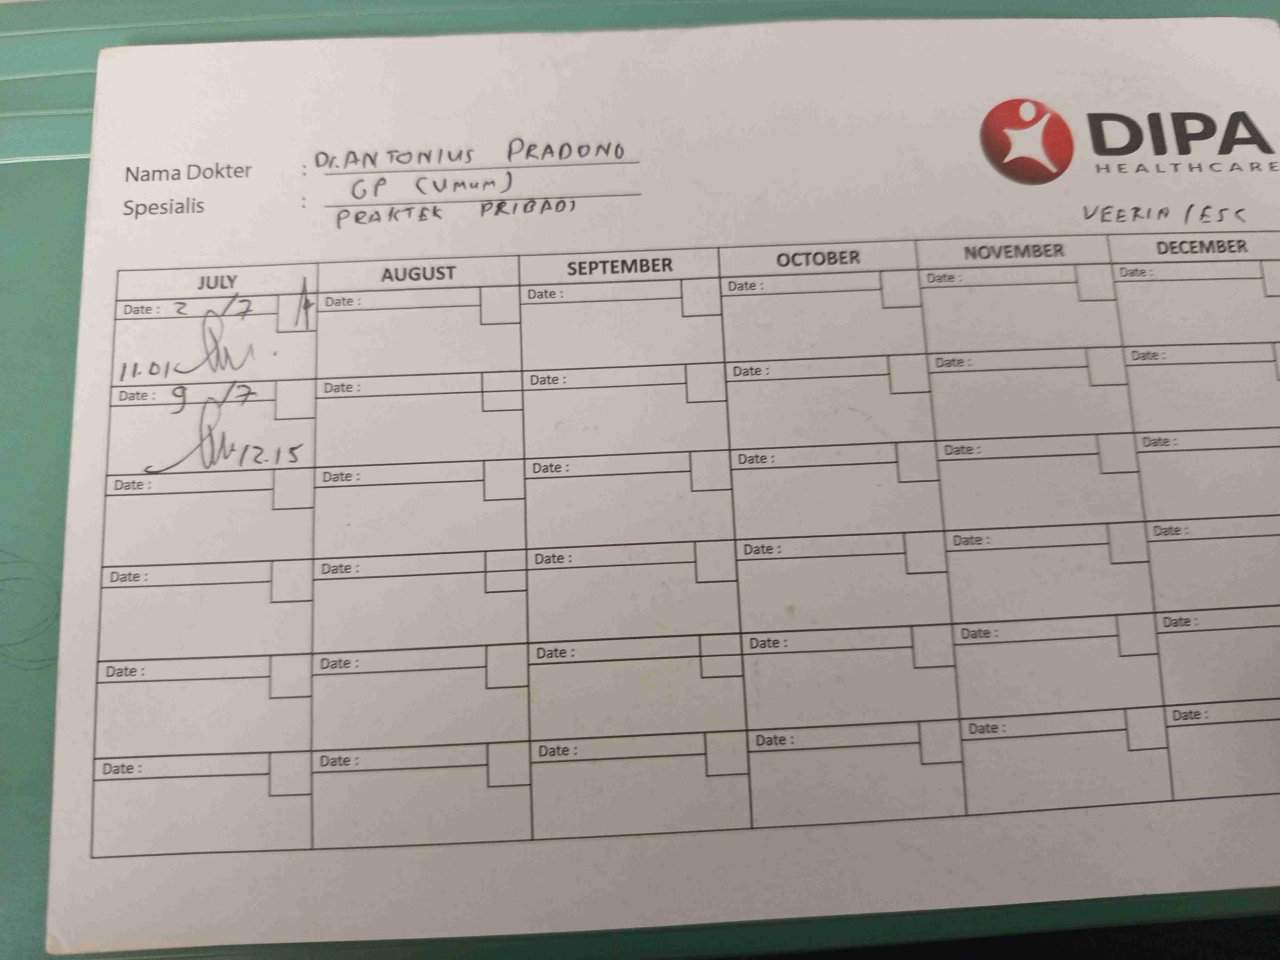 DIPA
HEALTHCARE
Nama Dokter : Dr. ANTONIUS PRADONO
Spesialis : GP (Umum)
PRAKTEK PRIBADI
VEERIN / ESC
JULY AUGUST SEPTEMBER OCTOBER NOVEMBER DECEMBER
Date : 2/7 Date : Date : Date : Date : Date :
11.01
Date : 9/7 Date : Date : Date : Date : Date :
12.15
Date : Date : Date : Date : Date : Date :
Date : Date : Date : Date : Date : Date :
Date : Date : Date : Date : Date : Date :
Date : Date : Date : Date : Date : Date :